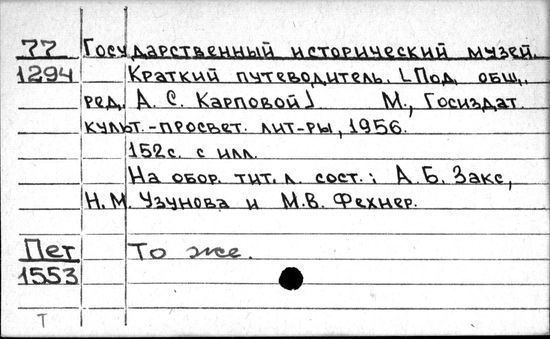 77 Государственный исторический музей.
1294 Краткий путеводитель. [Под общ.
ред. А. С. Карповой] М., Госиздат
культ.-просвет. лит-ры, 1956.
152с. с илл.
На обор. тит. л. сост.: А. Б. Закс,
Н. М. Узунова и М. В. Фехнер.
Пет То же.
1553
Т